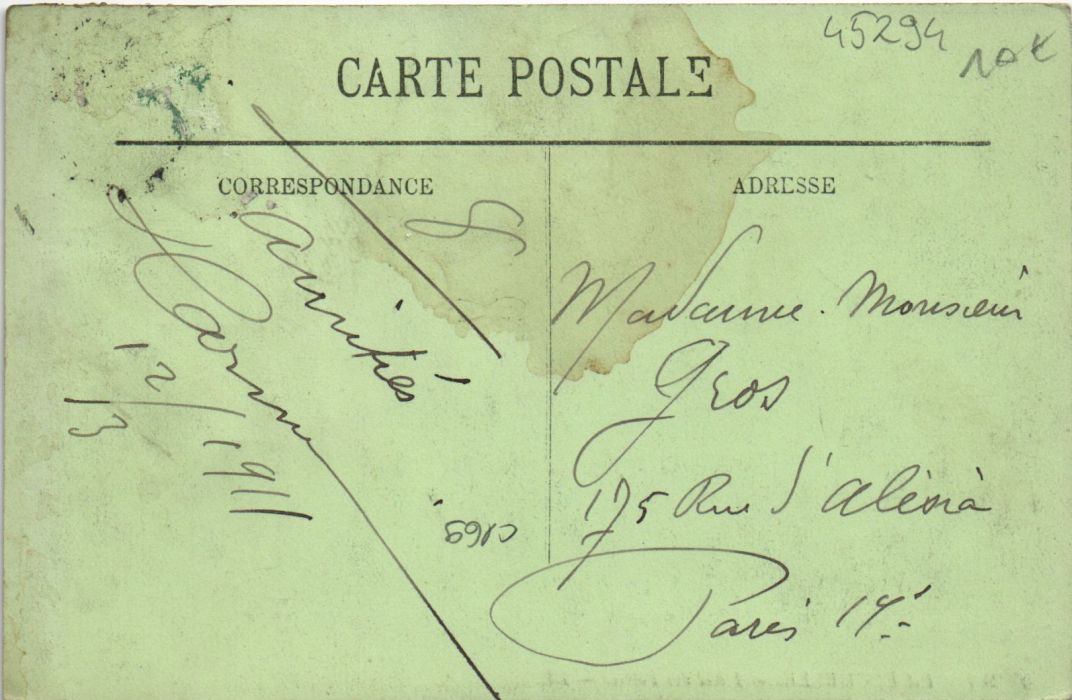 45294
10€
CARTE POSTALE
CORRESPONDANCE
ADRESSE
amitiés
12/3 1911
Madame. Monsieur
Gros
175 Rue d'Alésia
Paris 14è